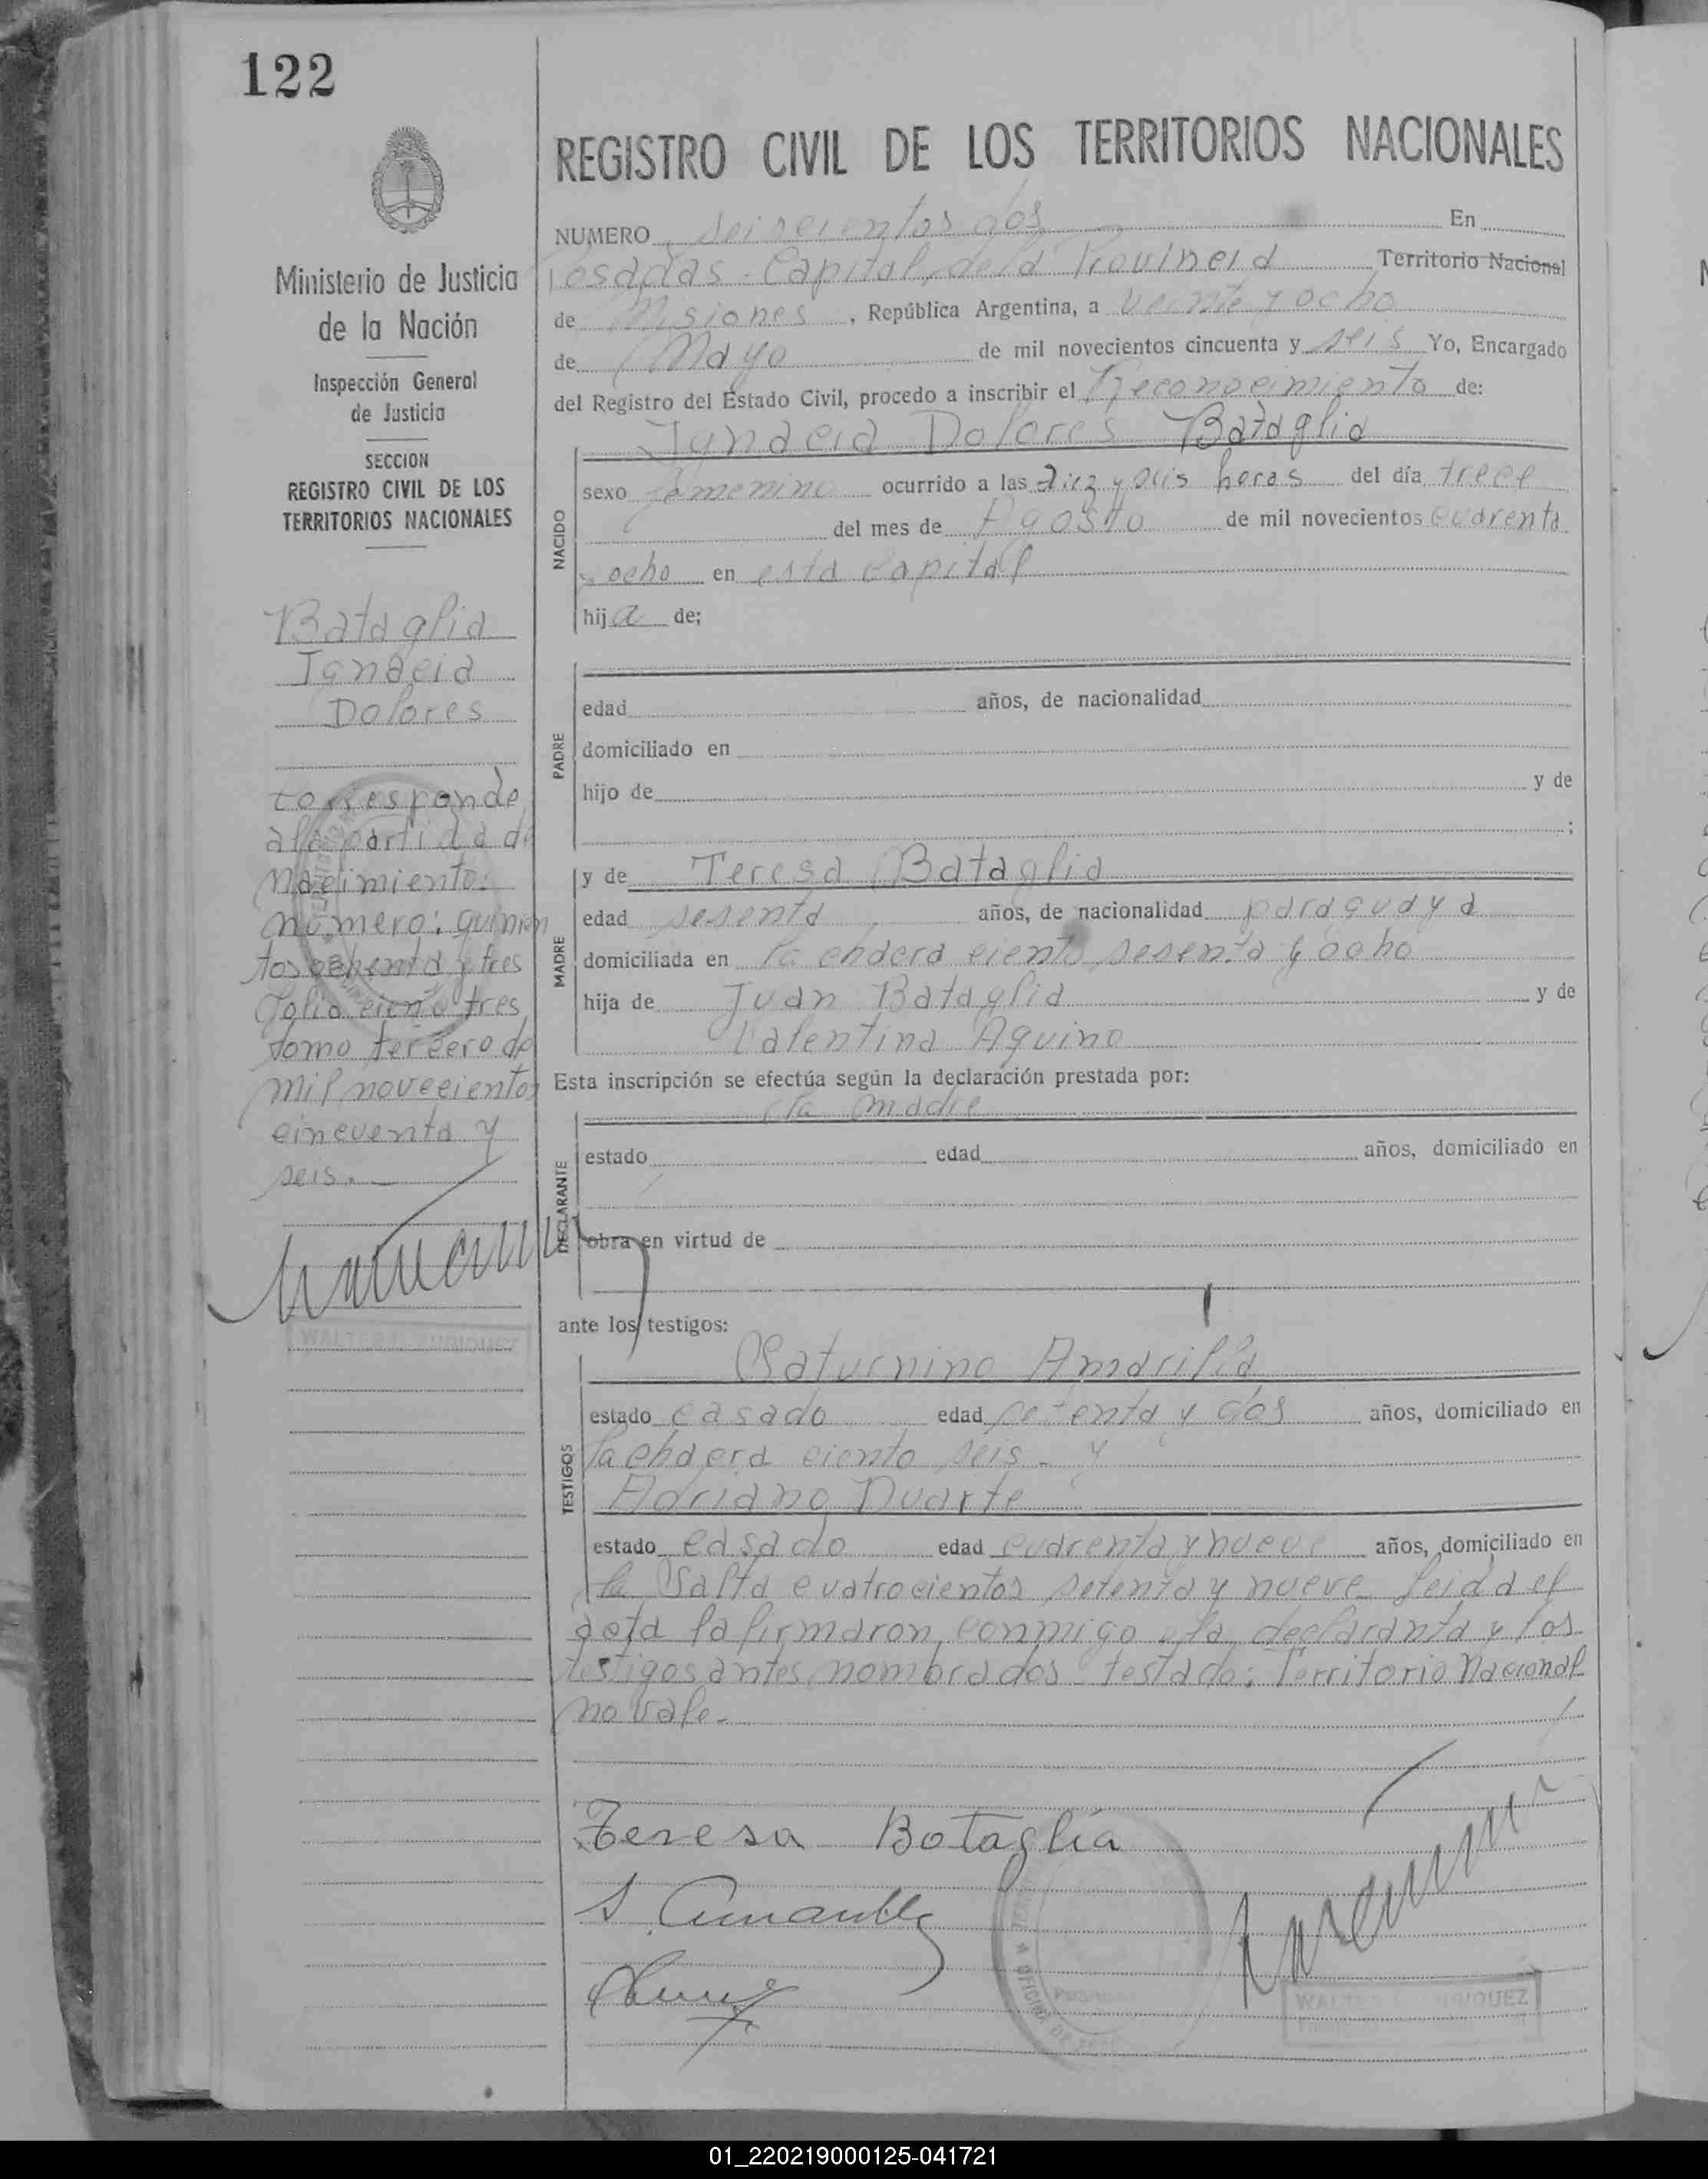 122
Ministerio de Justicia
de la Nación
Inspección General
de Justicia
SECCION
REGISTRO CIVIL DE LOS
TERRITORIOS NACIONALES
Bataglia
Ignacia
Dolores
corresponde
a la partida de
nacimiento:
número: quinien
tos ochenta y tres
folio ciento tres
tomo tercero de
mil novecientos
cincuenta y
seis.
REGISTRO CIVIL DE LOS TERRITORIOS NACIONALES
NUMERO seiscientos dos En
Posadas - Capital de la Provincia Territorio Nacional
de Misiones, República Argentina, a veinte y ocho
de Mayo de mil novecientos cincuenta y seis Yo, Encargado
del Registro del Estado Civil, procedo a inscribir el Reconocimiento de:
Ignacia Dolores Bataglia
NACIDO
sexo femenino ocurrido a las diez y seis horas del día trece
del mes de Agosto de mil novecientos cuarenta
y ocho en esta Capital
hija de;
PADRE
edad años, de nacionalidad
domiciliado en
hijo de y de
;
MADRE
y de Teresa Bataglia
edad sesenta años, de nacionalidad paraguaya
domiciliada en la chacra ciento sesenta y ocho
hija de Juan Bataglia y de
Valentina Aquino
Esta inscripción se efectúa según la declaración prestada por:
la madre
DECLARANTE
estado edad años, domiciliado en
obra en virtud de
ante los testigos:
TESTIGOS
Saturnino Amarilla
estado casado edad setenta y dos años, domiciliado en
la chacra ciento seis - y
Adriano Duarte
estado casado edad cuarenta y nueve años, domiciliado en
la Salta cuatrocientos setenta y nueve leida el
acta la firmaron conmigo la declaranta y los
testigos antes nombrados - testado: Territorio Nacional
no vale.-
Teresa Botaglia
01_220219000125-041721